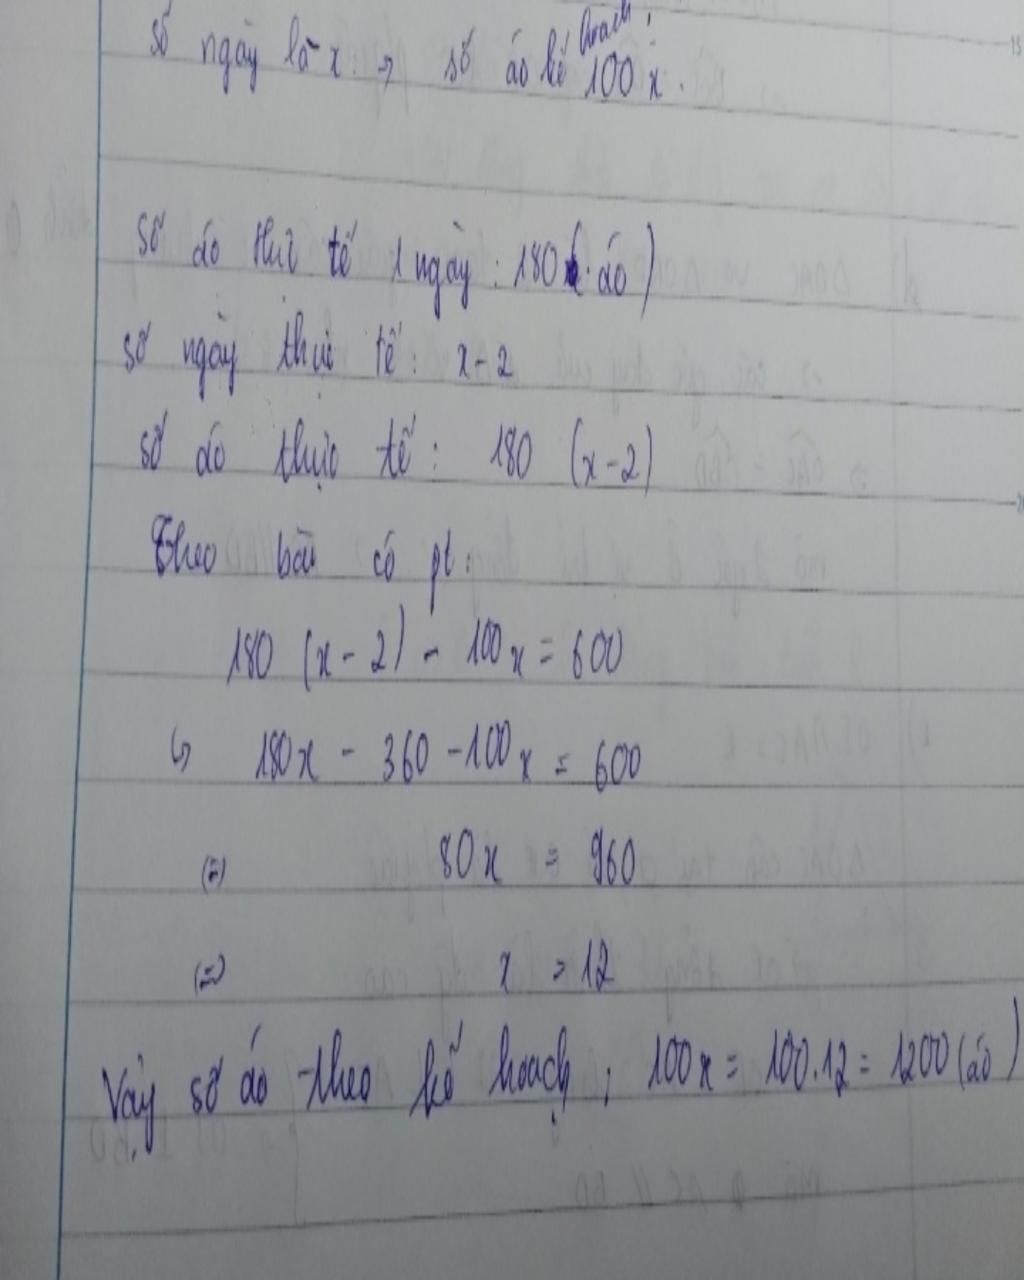 số ngày là x: → số áo kế hoạch: 100x.
số áo thực tế 1 ngày: 180 (áo)
số ngày thực tế: x-2
số áo thực tế: 180 (x-2)
Theo bài có pt:
180 (x-2) - 100x = 600
↳ 180x - 360 - 100x = 600
(=) 80x = 960
(=) x = 12
Vậy số áo theo kế hoạch: 100x = 100.12 = 1200 (áo)